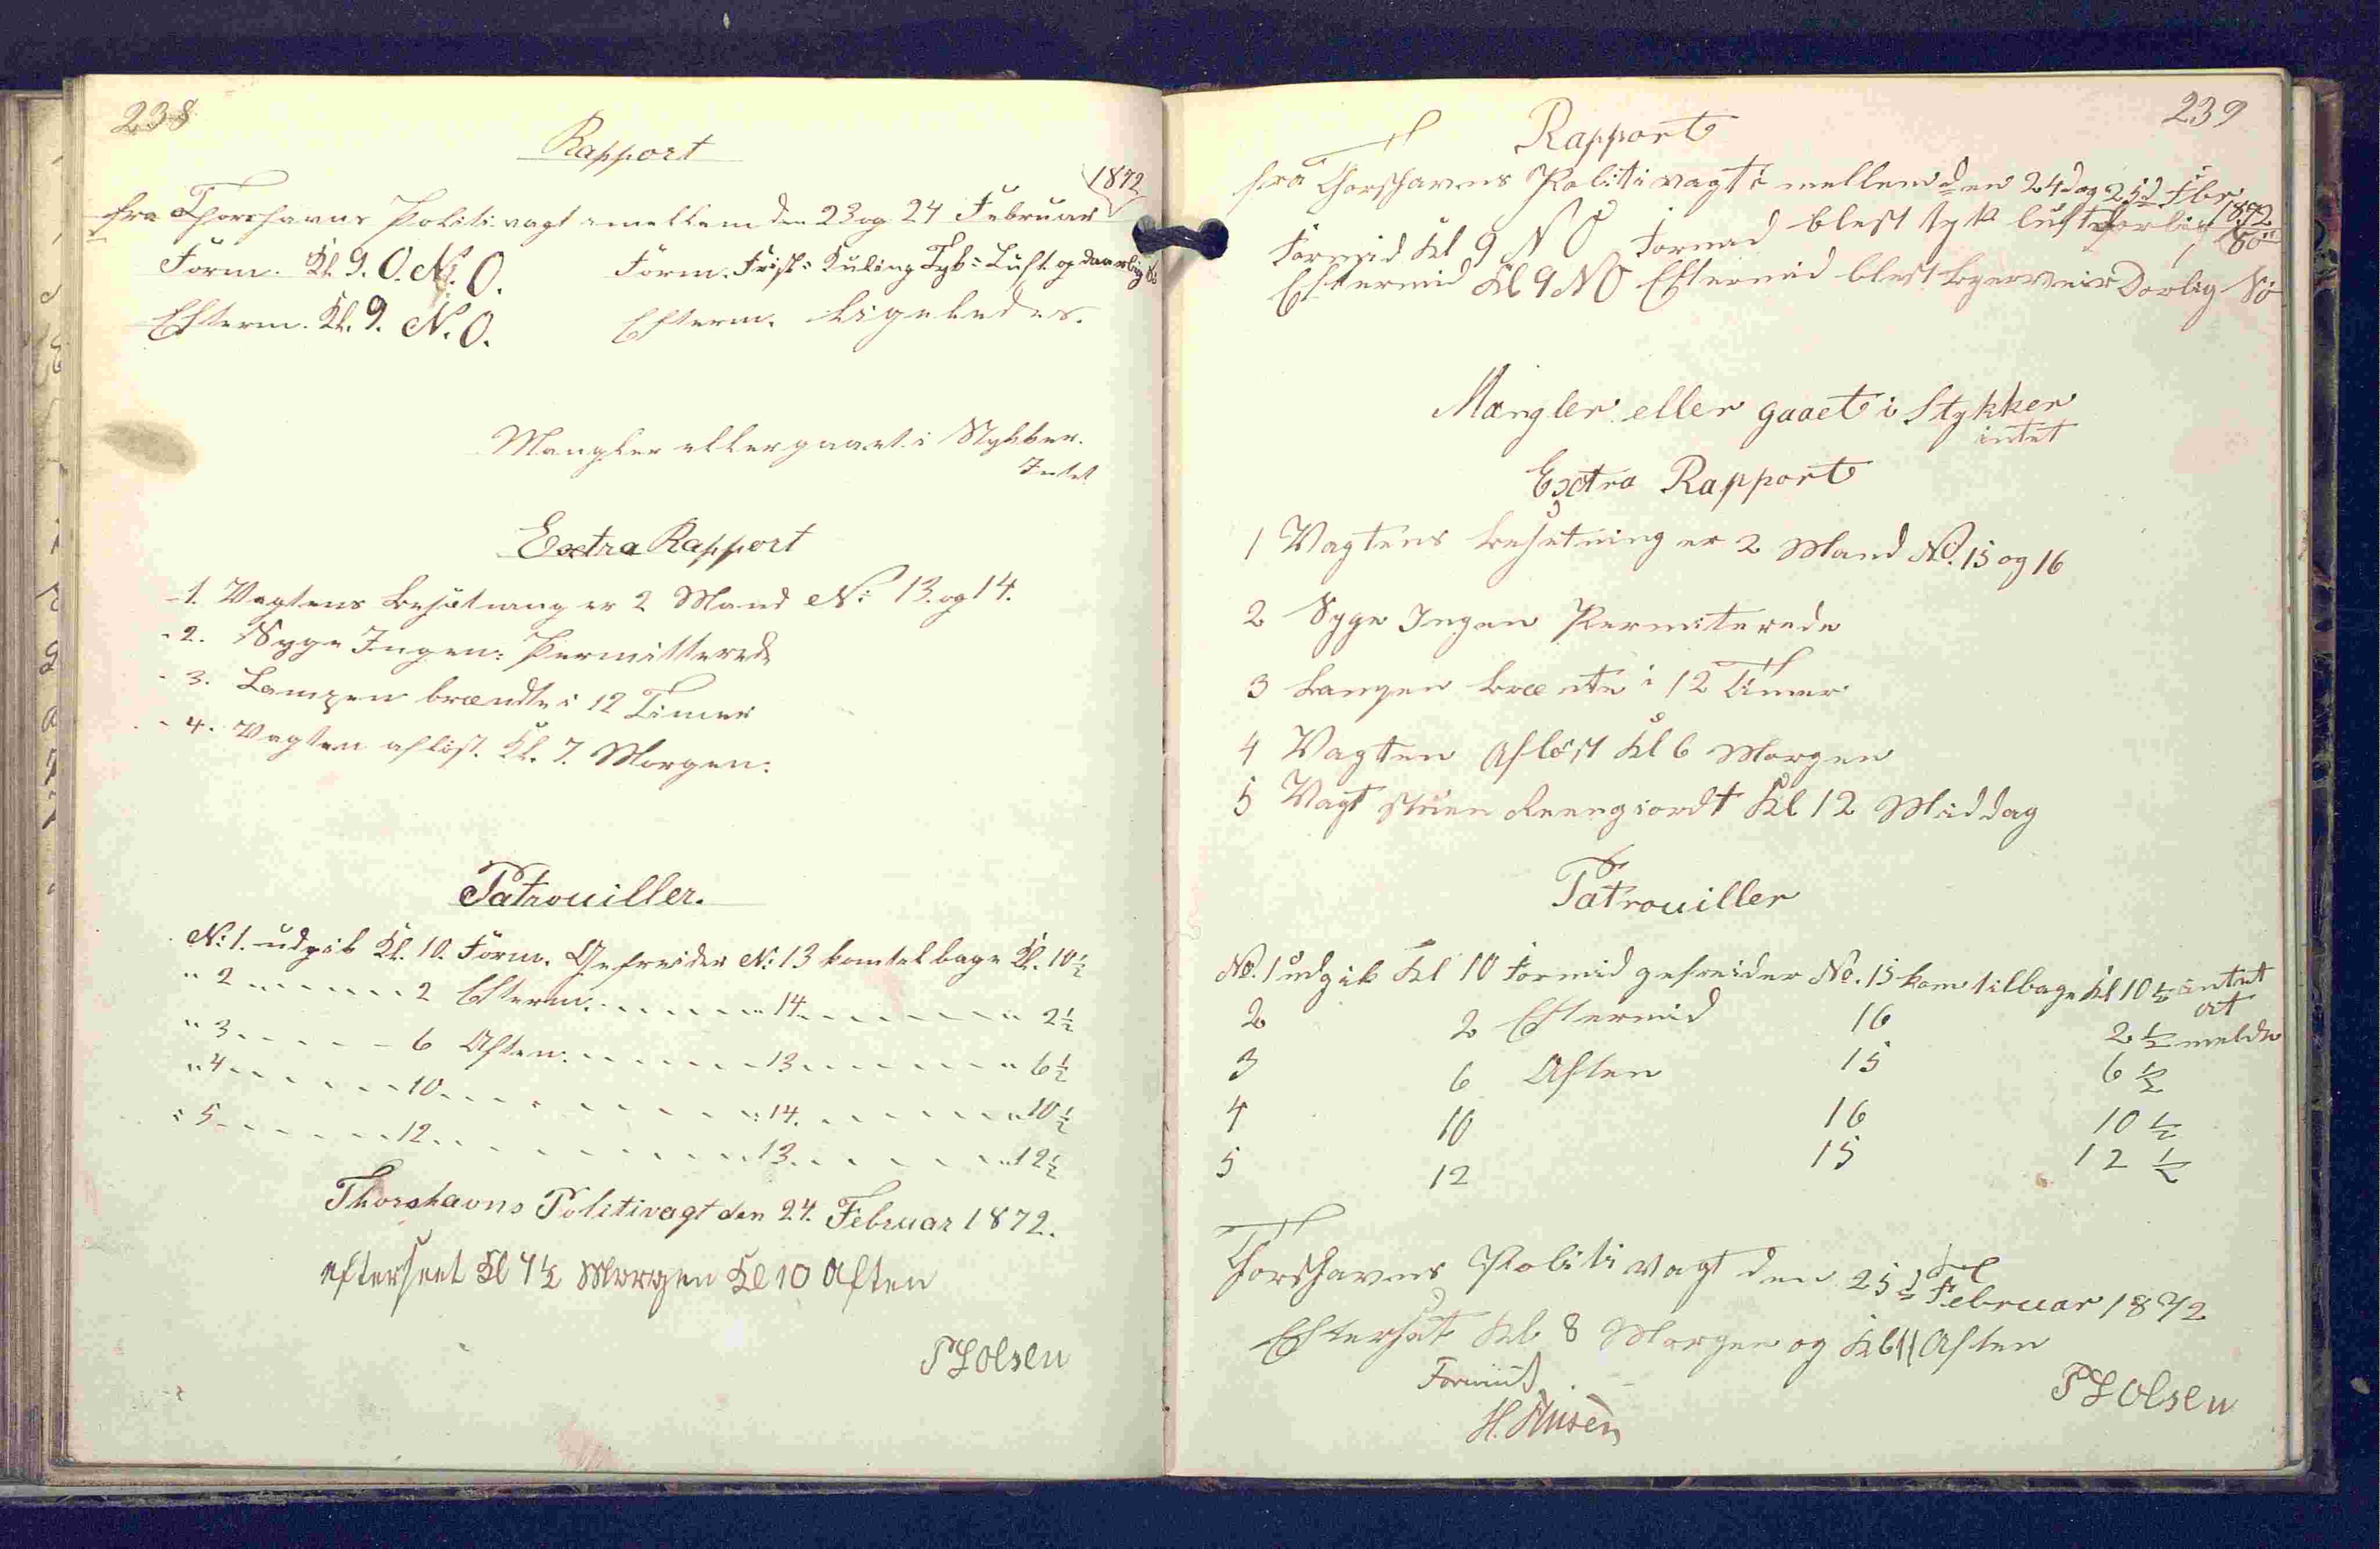 238
Rapport
fra Thorshavns Politivagt imellem den 23 og 24 Februar 1872
Form. Kl. 9. O.N.O. Form. Frisk Kuling Tyk Luft og daarlig Sö
Efterm. Kl. 9. N.O. Efterm. ligeledes.
Mangler eller gaaet i Stykker.
Intet
Extra Rapport
1. Vagtens Besætning er 2 Mand No: 13. og 14.
2. Syge Ingen: Permitterede
3. Lampen brændte i 12 Timer
4. Vagten aflöst. Kl. 7. Morgen:
Patrouiller.
No: 1. udgik Kl. 10. Form. Gefreider No: 13 kom tilbage Kl. 10 1/2
" 2 2 Efterm. 14 " 2 1/2
" 3 6 Aften. 13 " 6 1/2
" 4 10 14. " 10 1/2
" 5 12 13. " 12 1/2
Thorshavns Politivagt den 24. Februar 1872.
efterseet Kl 7 1/2 Morgen Kl 10 Aften
P Olsen
239
Rapport
fra Thorshavns Politivagt i mellem den 24d og 25d Fbr 1872
Formid Kl 9 NO Formid blest tyk luft Sö
Eftermid Kl 9 NO Eftermid blest Dorlig Sö
Mangler eller gaaet i Stykker
intet
Extra Rapport
1 Vagtens besetning er 2 Mand No. 15 og 16
2 Syge Ingen Permiterede
3 Lampen brænte i 12 Timer
4 Vagten Aflöst Kl 6 Morgen
5 Vagt stuen Reengiordt Kl 12 Middag
Patrouiller
No. 1 udgik Kl 10 Formid gefreider No. 15 kom tilbage Kl 10 1/2 intet
at
2 2 Eftermid 16 2 1/2 melde
3 6 Aften 15 6 1/2
4 10 16 10 1/2
5 12 15 12 1/2
Thorshavns Politi Vagt den 25d Februar 1872
Eftersët Kl 8 Morgen og Kl 11 Aften
P Olsen